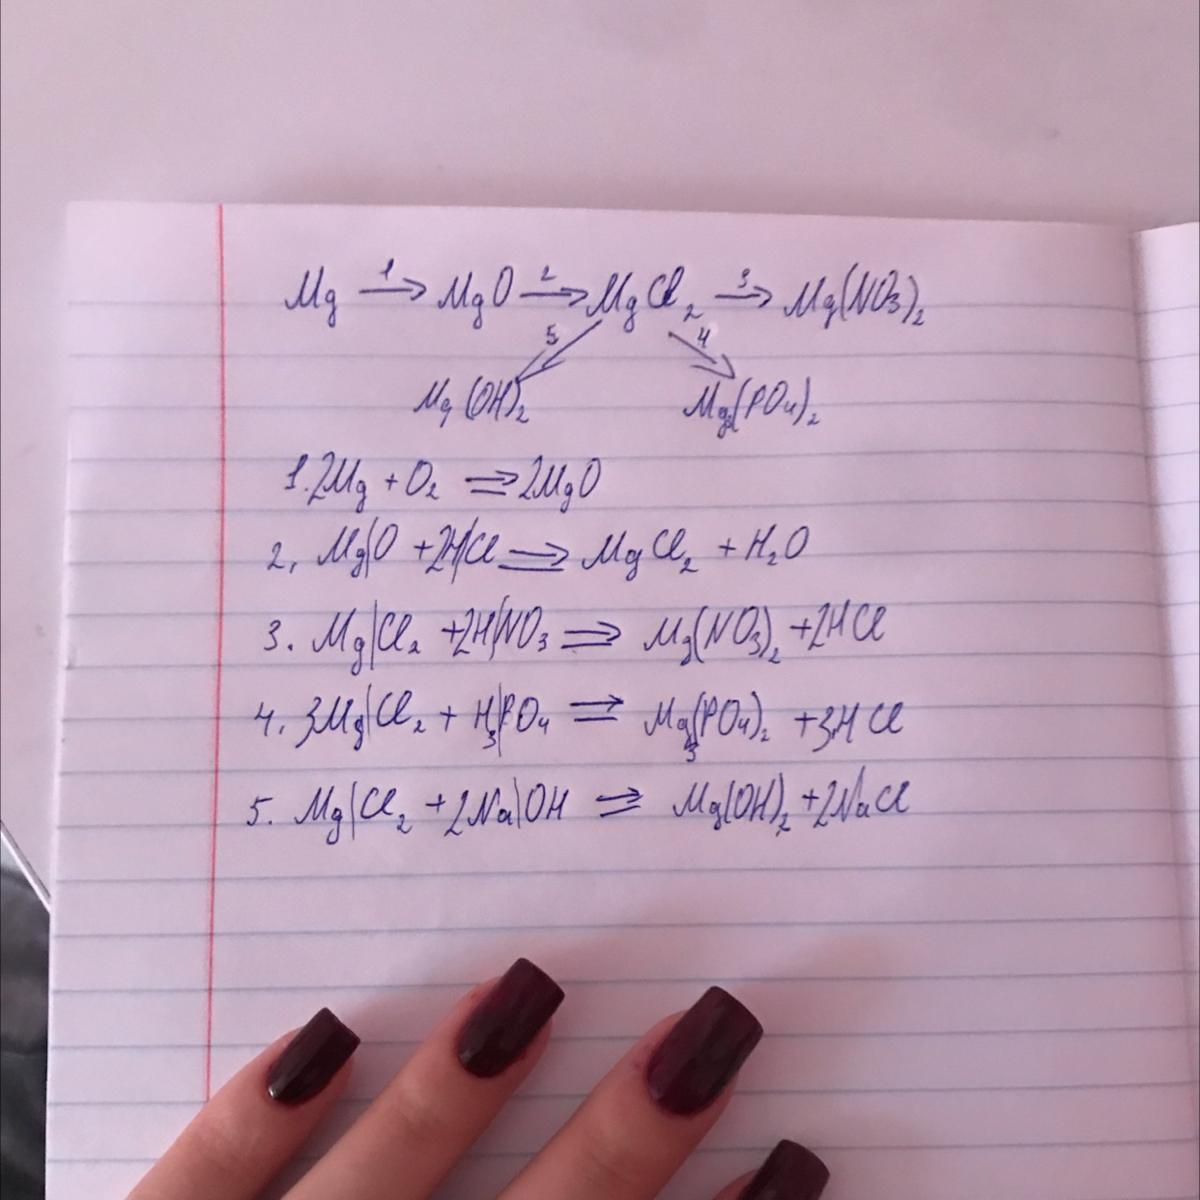 Mg →1 MgO →2 MgCl₂ →3 Mg(NO₃)₂
5 4
Mg(OH)₂ Mg₃(PO₄)₂
1. 2Mg + O₂ ⇒ 2MgO
2, Mg|O + 2H|Cl ⇒ MgCl₂ + H₂O
3. Mg|Cl₂ + 2H|NO₃ ⇒ Mg(NO₃)₂ + 2HCl
4. 3Mg|Cl₂ + H₃|PO₄ ⇒ Mg₃(PO₄)₂ + 3HCl
5. Mg|Cl₂ + 2Na|OH ⇒ Mg(OH)₂ + 2NaCl